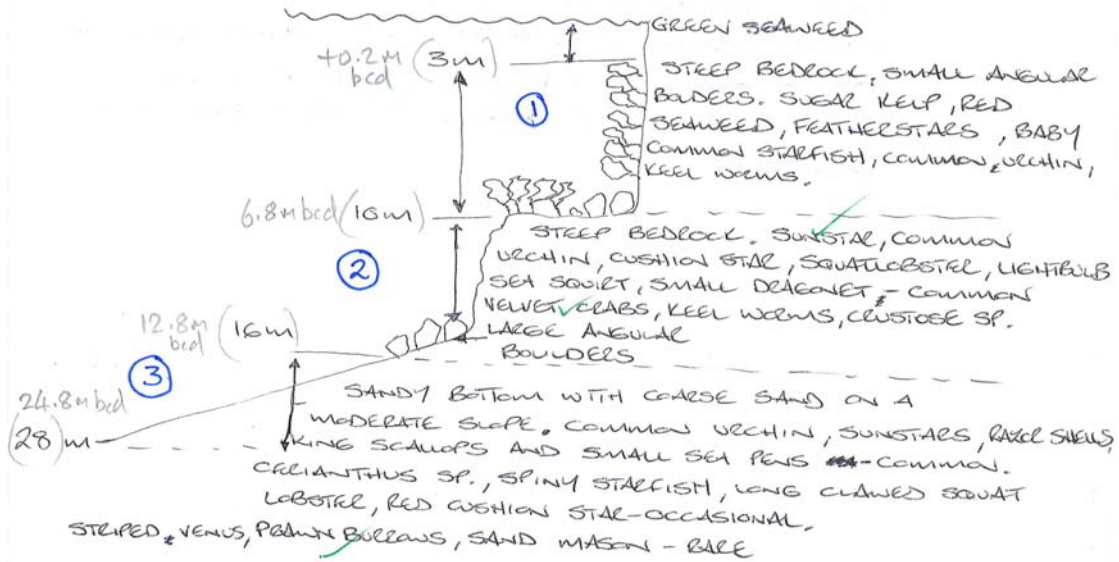 GREEN SEAWEED
+0.2M (3m)
bcd
STEEP BEDROCK, SMALL ANGULAR
BOLDERS. SUGAR KELP, RED
SEAWEED, FEATHERSTARS, BABY
COMMON STARFISH, COMMON URCHIN,
KEEL WORMS.
1
6.8M bcd (10m)
STEEP BEDROCK. SUNSTAR, COMMON
URCHIN, CUSHION STAR, SQUATLOBSTER, LIGHTBULB
SEA SQUIRT, SMALL DRAGONET, - COMMON
VELVET CRABS, KEEL WORMS, CRUSTOSE SP.
LARGE ANGULAR
BOULDERS
2
12.8M (16m)
bcd
3
24.8M bcd
(28)m
SANDY BOTTOM WITH COARSE SAND ON A
MODERATE SLOPE. COMMON URCHIN, SUNSTARS, RAZOR SHELLS,
KING SCALLOPS AND SMALL SEA PENS - COMMON.
CERIANTHUS SP., SPINY STARFISH, LONG CLAWED SQUAT
LOBSTER, RED CUSHION STAR-OCCASIONAL.
STRIPED VENUS, PRAWN BURROWS, SAND MASON - RARE